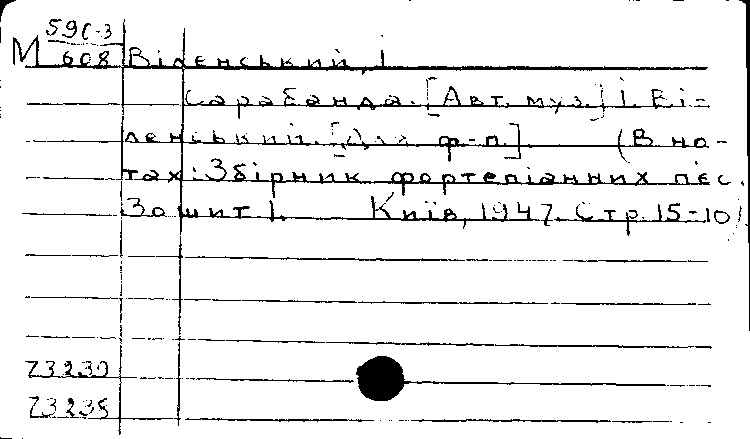 59С-3
М 608 Віленський, І.
Сарабанда. [Авт. муз.] І. Ві-
ленський. [Для ф-п.] (В но-
тах: Збірник фортепіанних п'єс.
Зошит 1. Київ, 1947. Стр. 15-10/
73239
73238